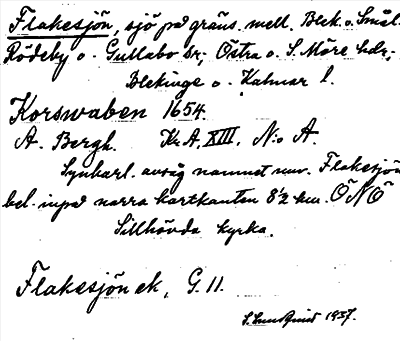 Flakesjön, sjö på gräns. mell. Blek. o. Smål.
Rödeby o. Gullabo sr; Östra o. S. Möre hdr;
Blekinge o. Kalmar l.
Korswaben 1654.
A. Bergh. Kr. A. XIII. N:o A.
Synbarl. avsåg namnet nuv. Flakesjön
bel. inpå norra kartkanten 8½ km. ÖNÖ
Sillhövda kyrka.
Flakesjön ek. G. 11.
S. Lundquist 1937.